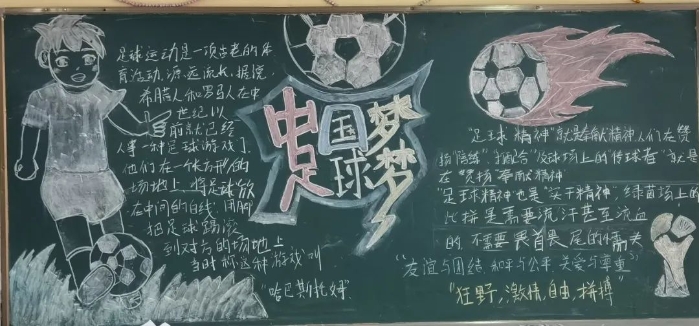 足球运动是一项古老的体
育活动,源远流长,据说,
希腊人和罗马人在中
世纪以
前就已经
从事一种足球游戏了
他们在一个长方形的
场地上,将足球放
在中间的白线
把足球踢滚
到对方的场地上
当时称这种游戏叫
"哈巴斯托姆"
中国梦
足球梦
"足球精神"就是奉献精神人们在赞
"足球精神也是"实干精神",绿茵场上的
比拼是需要流汗甚至流血
的 不需要畏首畏尾的懦夫
"友谊与团结 和平与公平 关爱与尊重"
"狂野,激情,自由,拼搏"